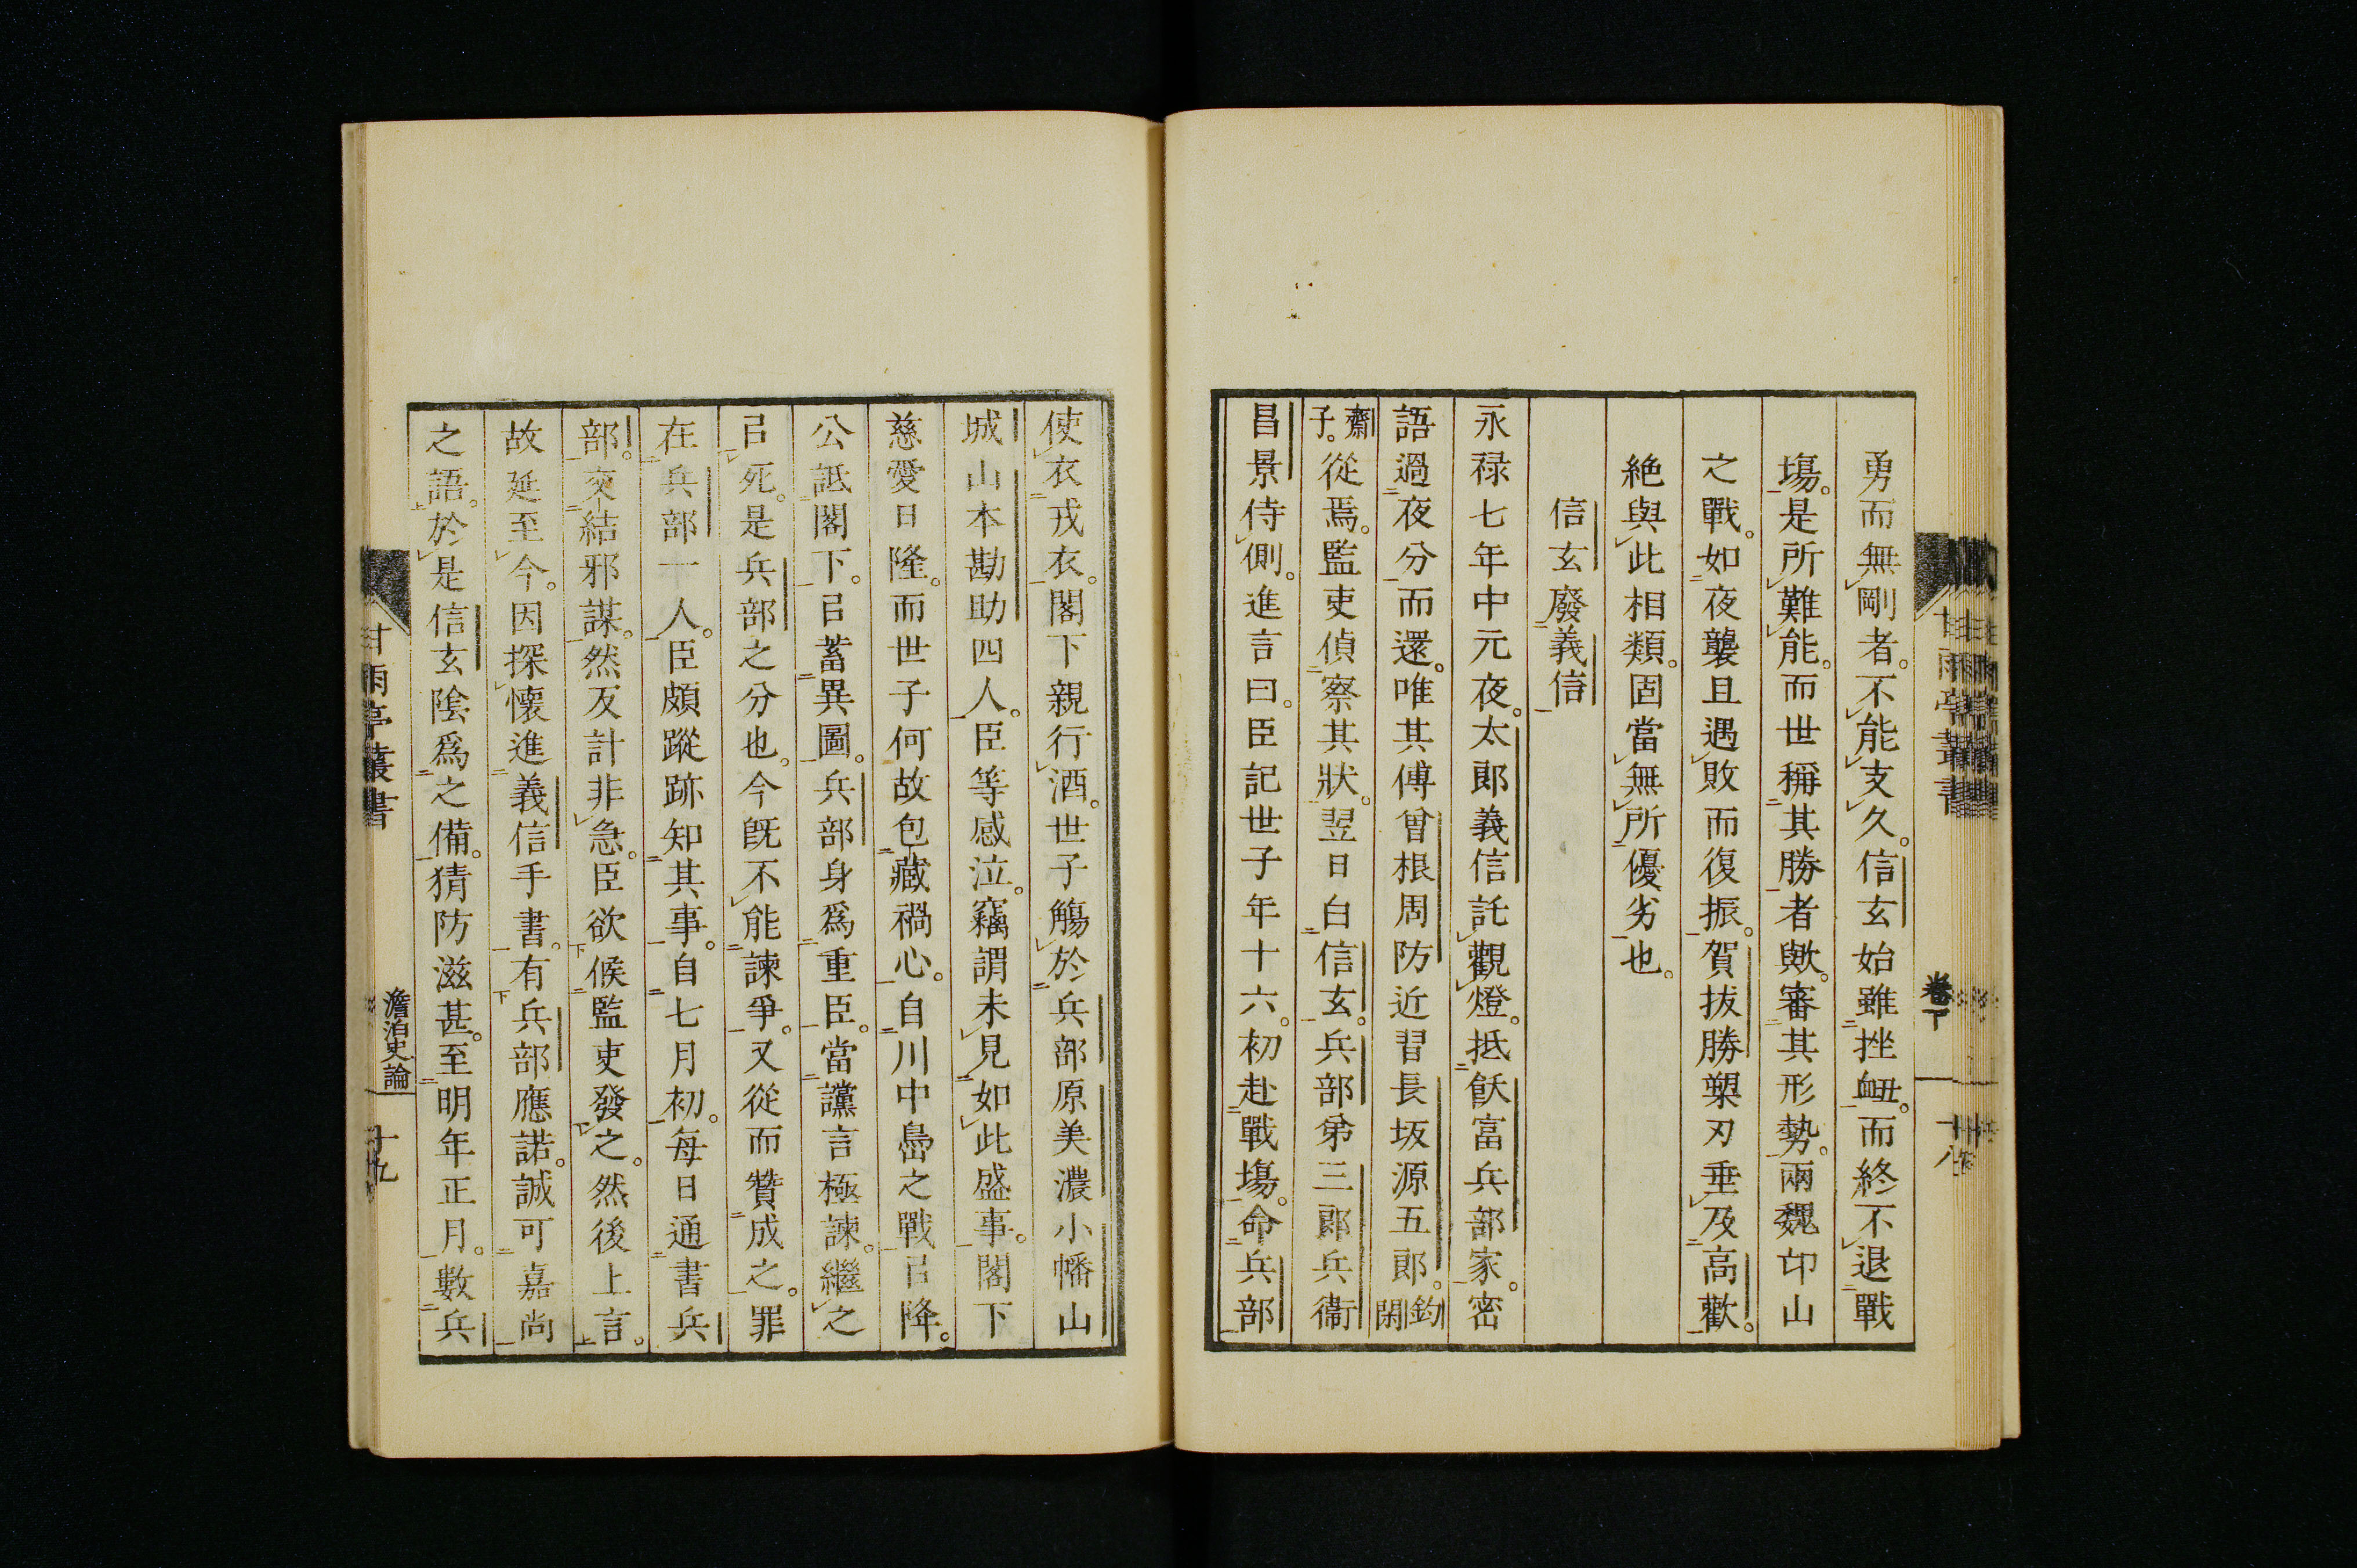 勇而無剛者。不能支久。信玄始雖挫衄。而終不退戰
塲。是所難能。而世稱其勝者歟。審其形勢。兩魏卬山
之戰。如夜襲且遇敗而復振。賀拔勝槊刃垂及高歡。
絶與此相類。固當無所優劣也。
信玄廢義信
永禄七年中元夜。太郎義信託觀燈。抵飫富兵部家。密
語過夜分而還。唯其傅曾根周防近習長坂源五郎。釣閑
齋子。從焉。監吏偵察其狀。翌日白信玄。兵部弟三郎兵衞
昌景侍側。進言曰。臣記世子年十六。初赴戰塲。命兵部
卷下
十八
使衣戎衣。閣下親行酒。世子觴於兵部原美濃小幡山
城山本勘助四人。臣等感泣。竊謂未見如此盛事。閣下
慈愛日隆。而世子何故包藏禍心。自川中嶌之戰㠯降。
公詆閣下。㠯蓄異圖。兵部身爲重臣。當讜言極諫。繼之
㠯死。是兵部之分也。今既不能諫爭。又從而贊成之。罪
在兵部一人。臣頗蹤跡知其事。自七月初。每日通書兵
部。交結邪謀。然反計非急。臣欲候監吏發之。然後上言。
故延至今。因探懷進義信手書。有兵部應諾。誠可嘉尚
之語。於是信玄陰爲之備。猜防滋甚。至明年正月。數兵
甘雨亭叢書
澹泊史論
十九